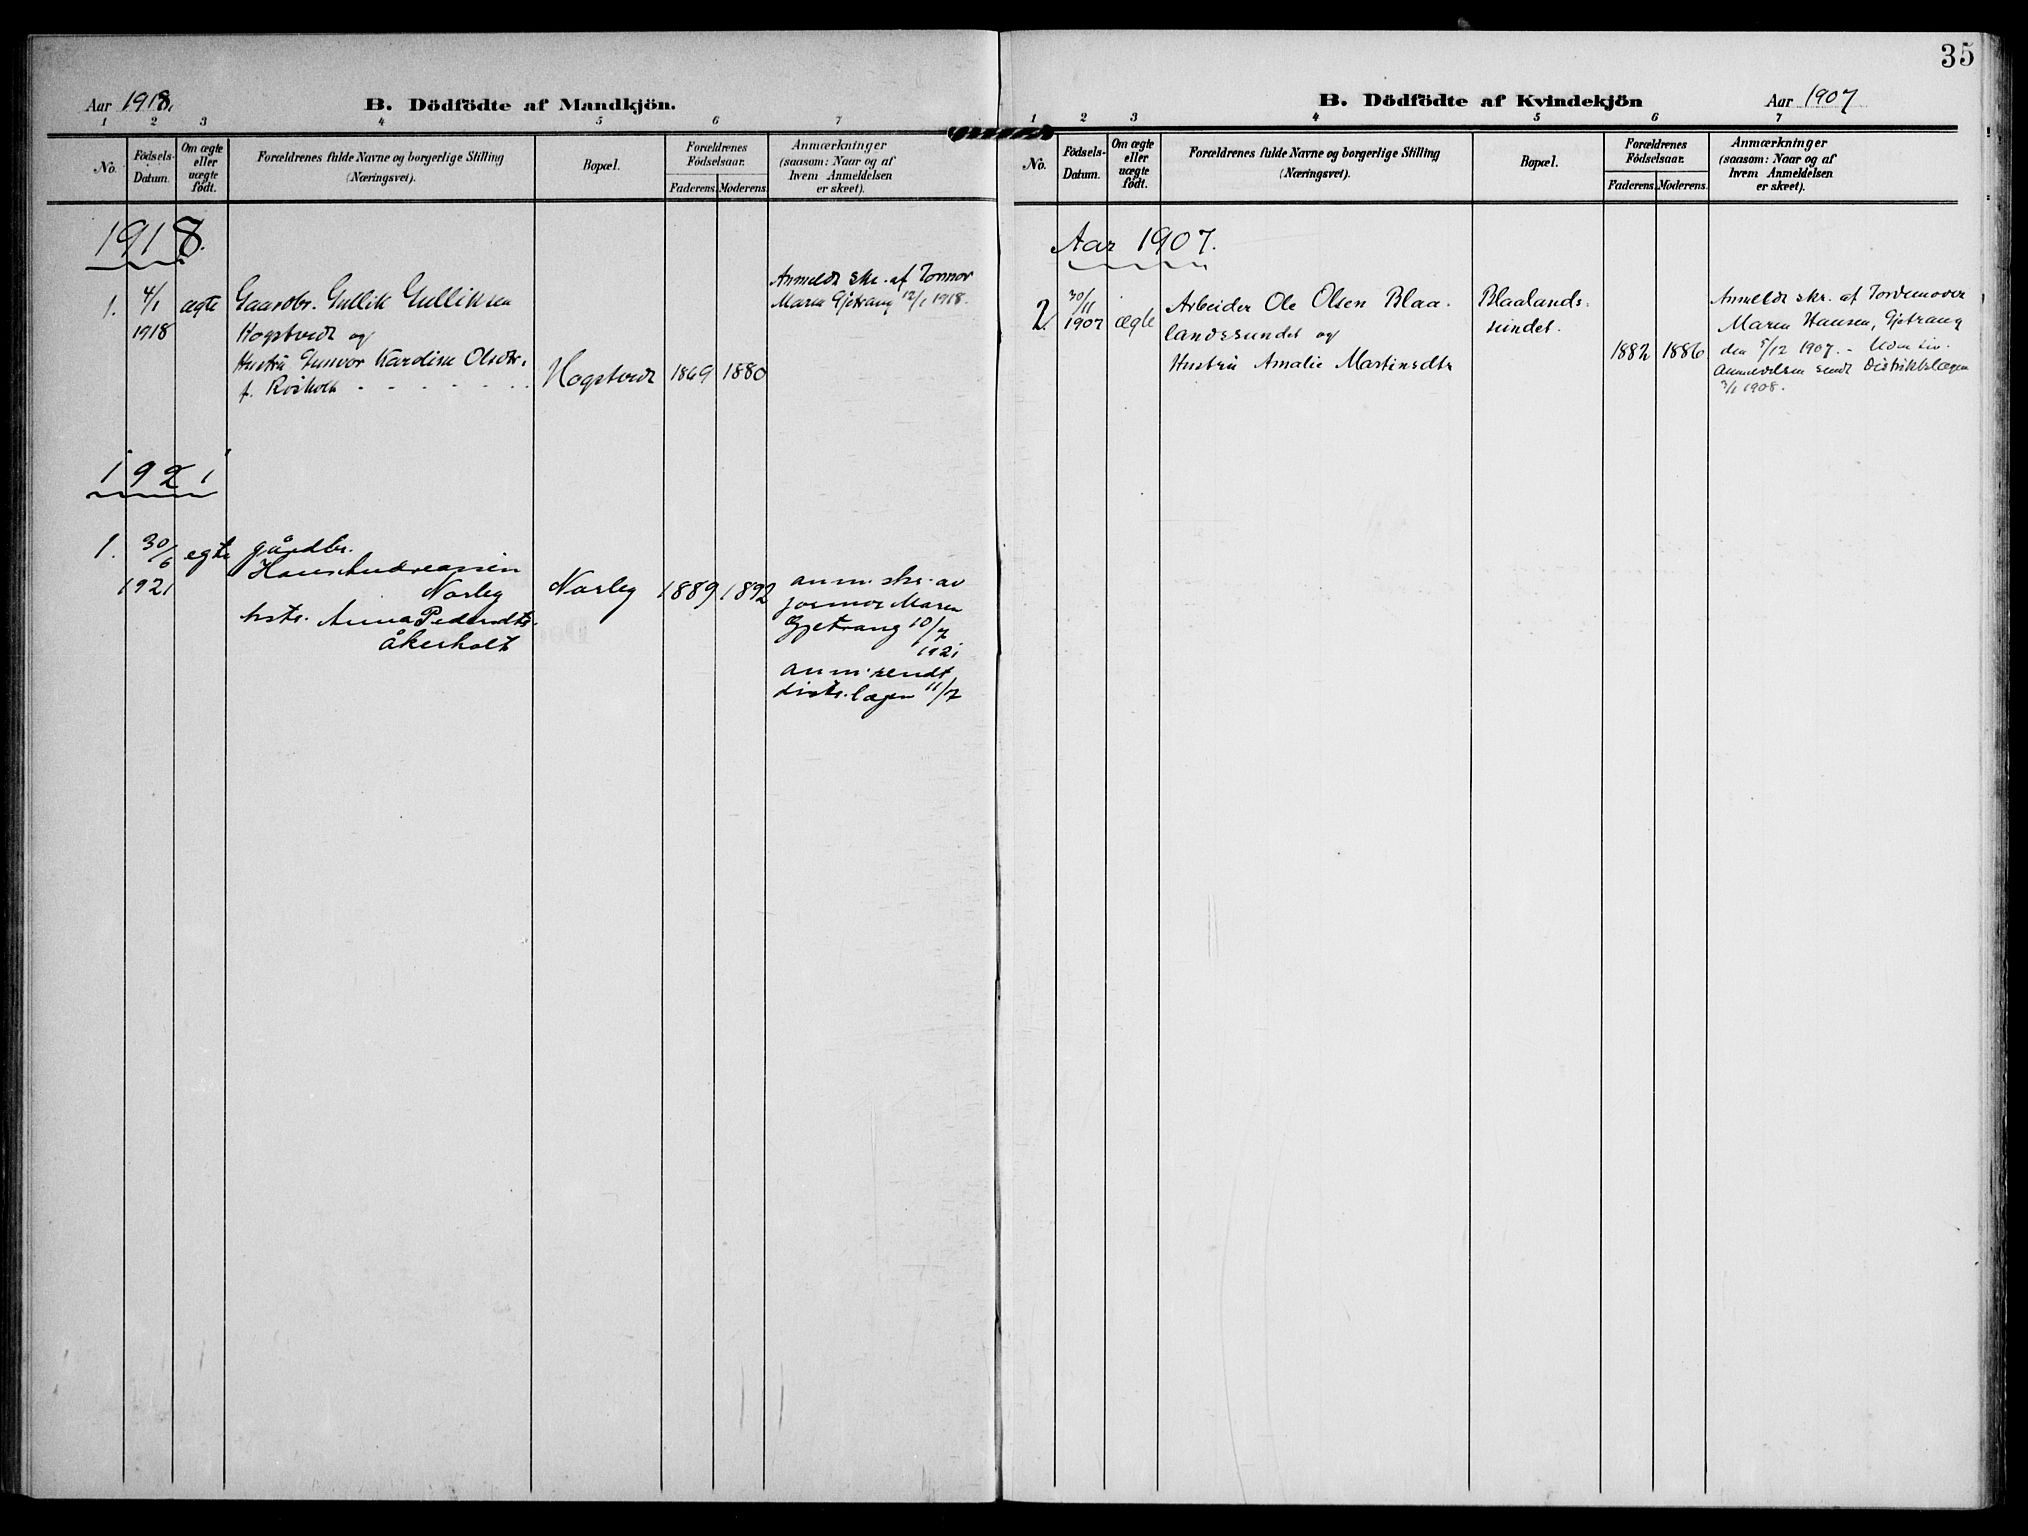 35
Aar 1918. B. Dödfödte af Mandkjön.
1 2 3 4 5 6 7
No. Födsels-Datum. Om ægte eller uægte födt. Forældrenes fulde Navne og borgerlige Stilling (Næringsvei). Bopæl. Forældrenes Födselsaar. Faderens. Moderens. Anmærkninger (saasom: Naar og af hvem Anmeldelsen er skeet).
1918.
1. 4/1 1918 ægte Gaardbr. Gullik Gulliksen
Hogstvedt og
Hustru Gunvor Kardine Olsdtr.
f. Rösholt
Hogstvedt 1869 1880
Anmeldt skr. af Jormor
Maren Gjetrang 12/1 1918.
1921
1. 30/6 1921 egte gårdbr.
Hans Andreassen
Norley
hstr. Anna Pedersdtr.
åkerholt
Norley 1889 1892
anm. skr. av
jormor Maren
Gjetrang 10/7
1921
anm. sendt
distr. lægen 11/7
B. Dödfödte af Kvindekjön Aar 1907
1 2 3 4 5 6 7
No. Födsels-Datum. Om ægte eller uægte födt. Forældrenes fulde Navne og borgerlige Stilling (Næringsvei). Bopæl. Forældrenes Födselsaar. Faderens. Moderens. Anmærkninger (saasom: Naar og af hvem Anmeldelsen er skeet).
Aar 1907.
2. 30/11 1907 ægte Arbeider Ole Olsen Blaa-
landssundet og
Hustru Amalie Martinsdtr
Blaalands-
sundet.
1882 1886
Anmeldt skr. af Jordemoder
Maren Hansen, Gjetrang
den 5/12 1907. – Uden Liv.
Anmeldelsen sendt Distriktslægen
3/1 1908.